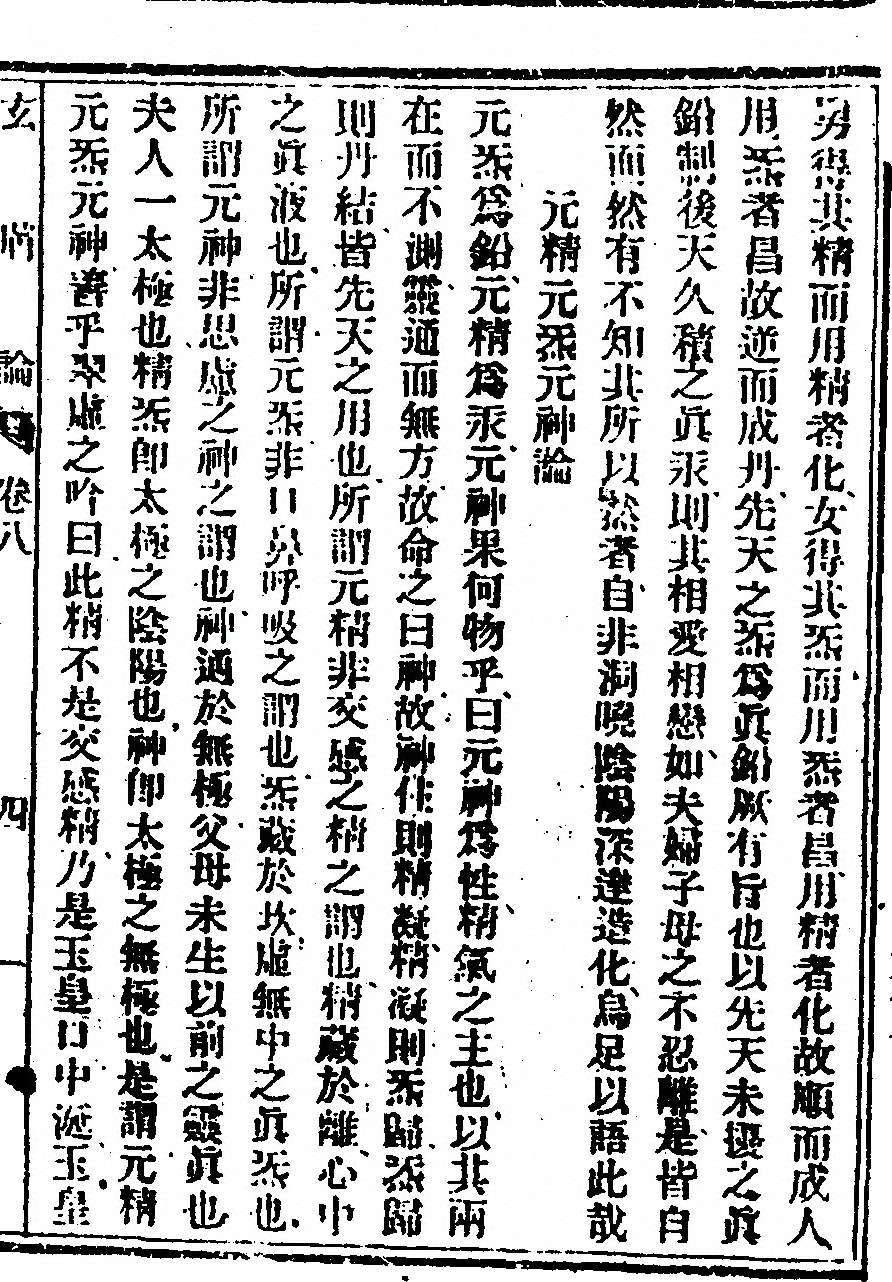 男得其精而用精者化女得其炁而用炁者昌用精者化故順而成人
用炁者昌故逆而成丹先天之炁爲眞鉛厥有旨也以先天未擾之眞
鉛制後天久積之眞汞則其相愛相戀如夫婦子母之不忍離是皆自
然而然有不知其所以然者自非洞曉陰陽深達造化烏足以語此哉
元精元炁元神論
元炁爲鉛元精爲汞元神果何物乎曰元神爲性精氣之主也以其兩
在而不測靈通而無方故命之曰神故神住則精凝精凝則炁歸炁歸
則丹結皆先天之用也所謂元精非交感之精之謂也精藏於離心中
之眞液也所謂元炁非口鼻呼吸之謂也炁藏於坎虛無中之眞炁也
所謂元神非思慮之神之謂也神通於無極父母未生以前之靈眞也
夫人一太極也精炁卽太極之陰陽也神卽太極之無極也是謂元精
元炁元神善乎翠虛之吟曰此精不是交感精乃是玉皇口中涎玉皇
玄膚論 卷八 四